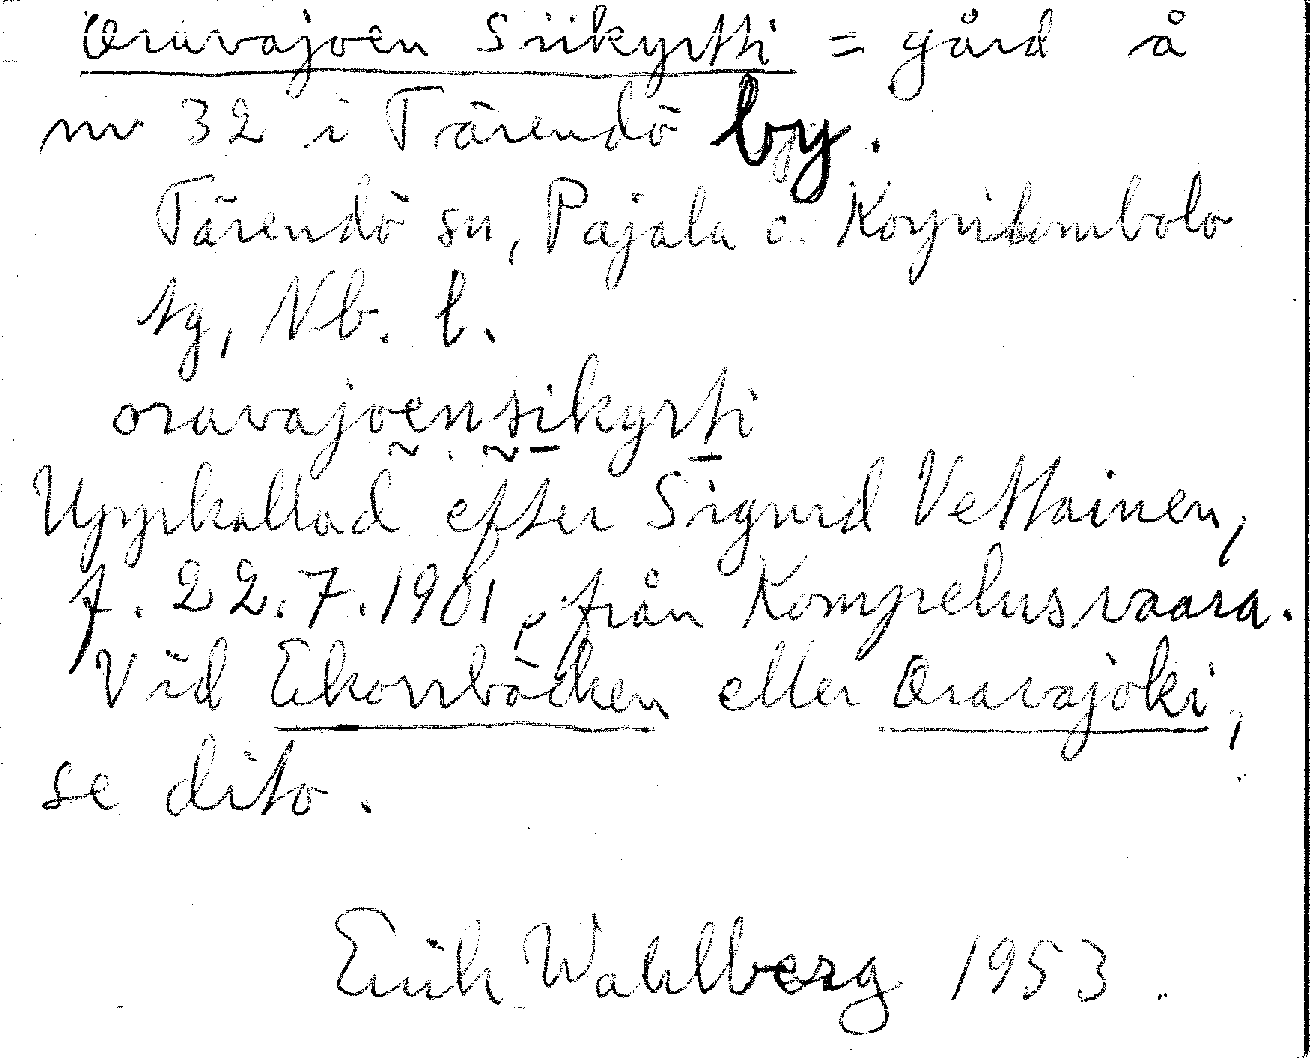 Oravajoen Siikyrtti = gård å
nr 32 i Tärendö by.
Tärendö sn, Pajala o. Korpilombolo
tg, Nb. l.
oravajoensikyrti
Uppkallad efter Sigurd Vettainen,
f. 22.7.1901, från Kompelusvaara.
Vid Ekorrbäcken eller Oravajoki,
se dito.
Erik Wahlberg 1953.